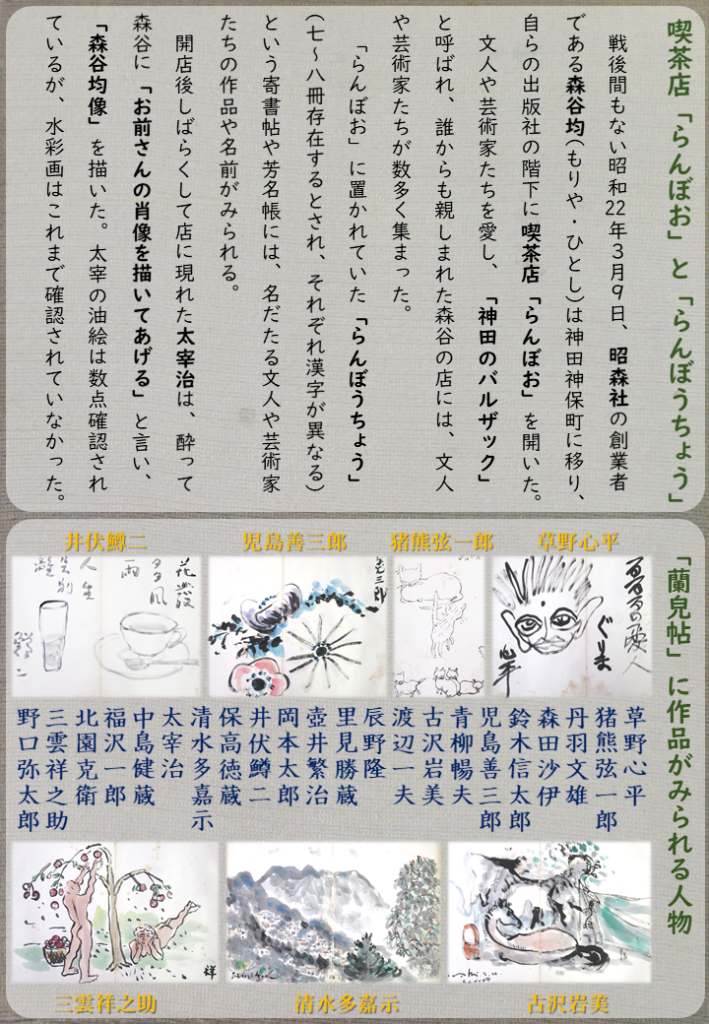 喫茶店「らんぼお」と「らんぼうちょう」
戦後間もない昭和22年3月9日、昭森社の創業者
である森谷均(もりや・ひとし)は神田神保町に移り、
自らの出版社の階下に喫茶店「らんぼお」を開いた。
文人や芸術家たちを愛し、「神田のバルザック」
と呼ばれ、誰からも親しまれた森谷の店には、文人
や芸術家たちが数多く集まった。
「らんぼお」に置かれていた「らんぼうちょう」
(七～八冊存在するとされ、それぞれ漢字が異なる)
という寄書帖や芳名帳には、名だたる文人や芸術家
たちの作品や名前がみられる。
開店後しばらくして店に現れた太宰治は、酔って
森谷に「お前さんの肖像を描いてあげる」と言い、
「森谷均像」を描いた。太宰の油絵は数点確認され
ているが、水彩画はこれまで確認されていなかった。
「蘭皃帖」に作品がみられる人物
草野心平
ぐりま
心平
猪熊弦一郎
児島善三郎
善三郎
井伏鱒二
花發
多風
雨
人生
足別
離
鱒二
草野心平
猪熊弦一郎
丹羽文雄
森田沙伊
鈴木信太郎
児島善三郎
青柳暢夫
古沢岩美
渡辺一夫
辰野隆
里見勝蔵
壺井繁治
岡本太郎
井伏鱒二
保高徳蔵
清水多嘉示
太宰治
中島健蔵
福沢一郎
北園克衛
三雲祥之助
野口弥太郎
古沢岩美
清水多嘉示
祥
三雲祥之助